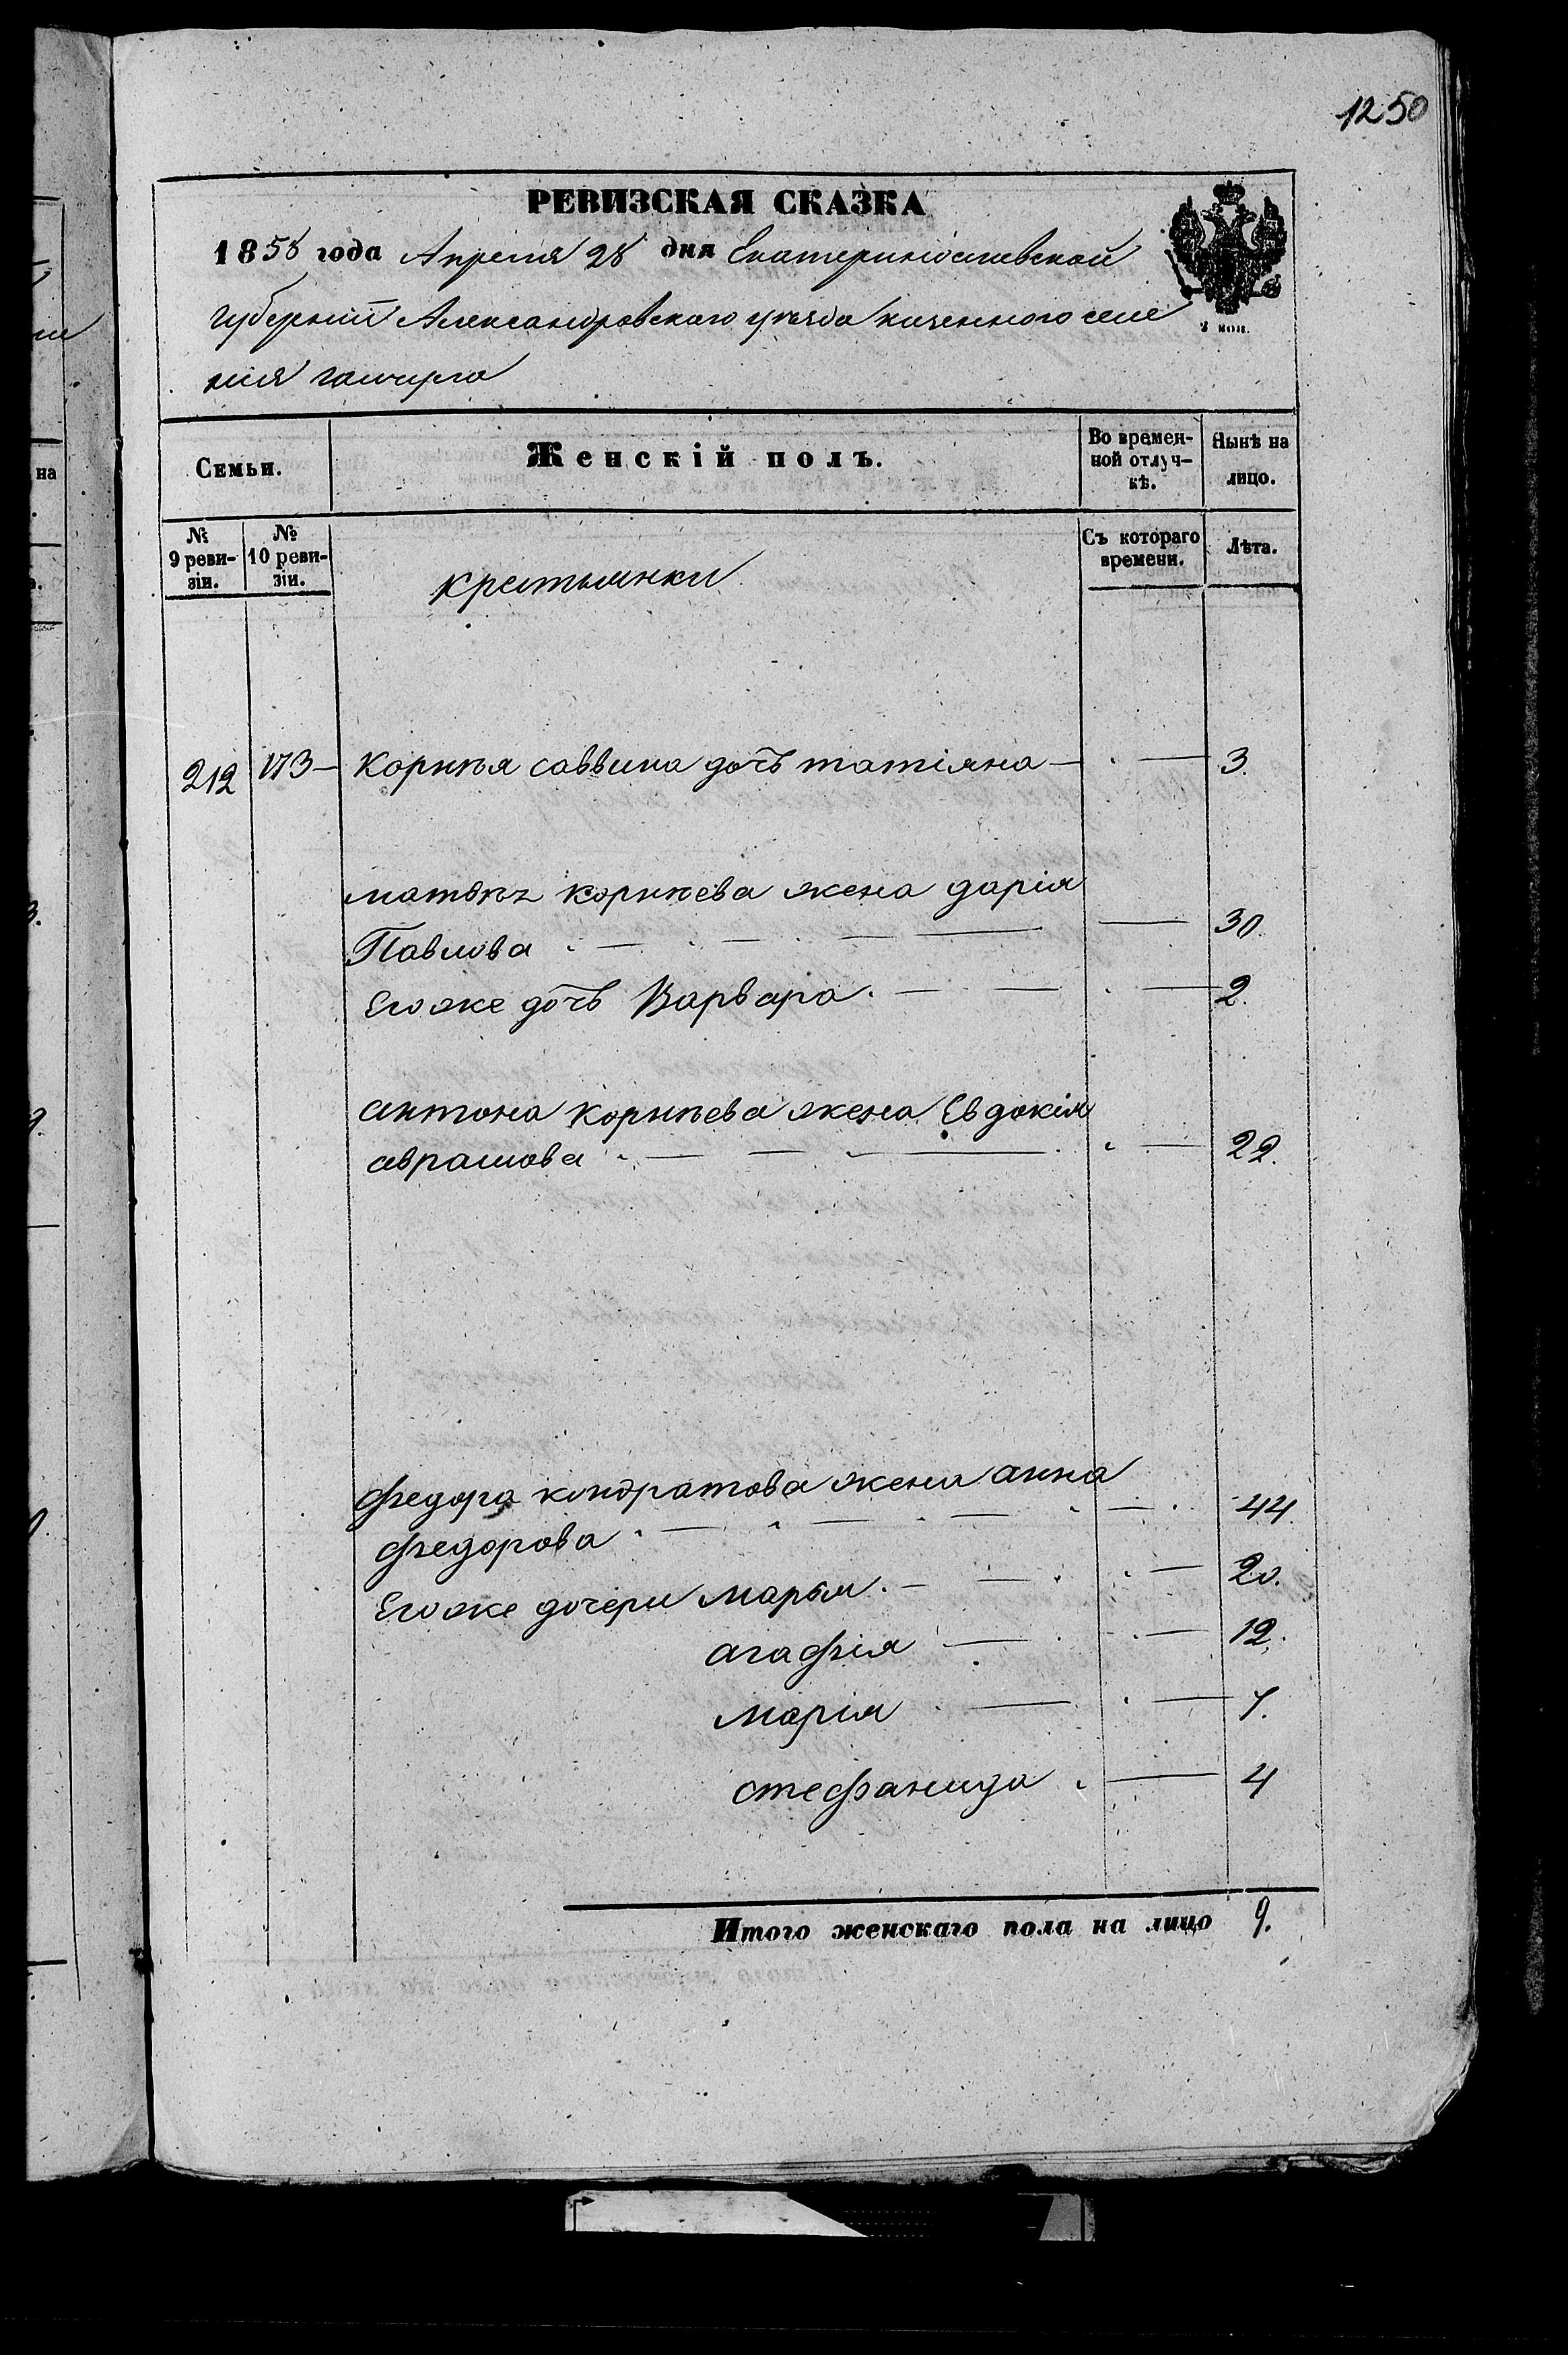 1250
РЕВИЗСКАЯ СКАЗКА
1858 года Апреля 28 дня Екатеринославской
губернии Александровского уѣзда казенного селе
ния гайчура
2 коп.
Семьи.
Женскій полъ.
Во времен-
ной отлуч-
кѣ.
Нынѣ на
лицо.
№
9 реви-
зіи.
№
10 реви-
зіи.
крестьянки
Съ котораго
времени.
Лѣта.
212 173 – Корнѣя саввина дочь татіяна — . — 3.
матвѣя корнѣева жена дарія
Павлова — 30.
Его же дочь Варвара. — . — 2.
антона корнѣева жена Евдокія
аврамова — . — 22.
федора кондратова жена анна
федорова — 44.
Его же дочери марья. — . — 20.
агафія — . — 12.
марія — . — 7.
стефанида . — 4
Итого женскаго пола на лицо 9.